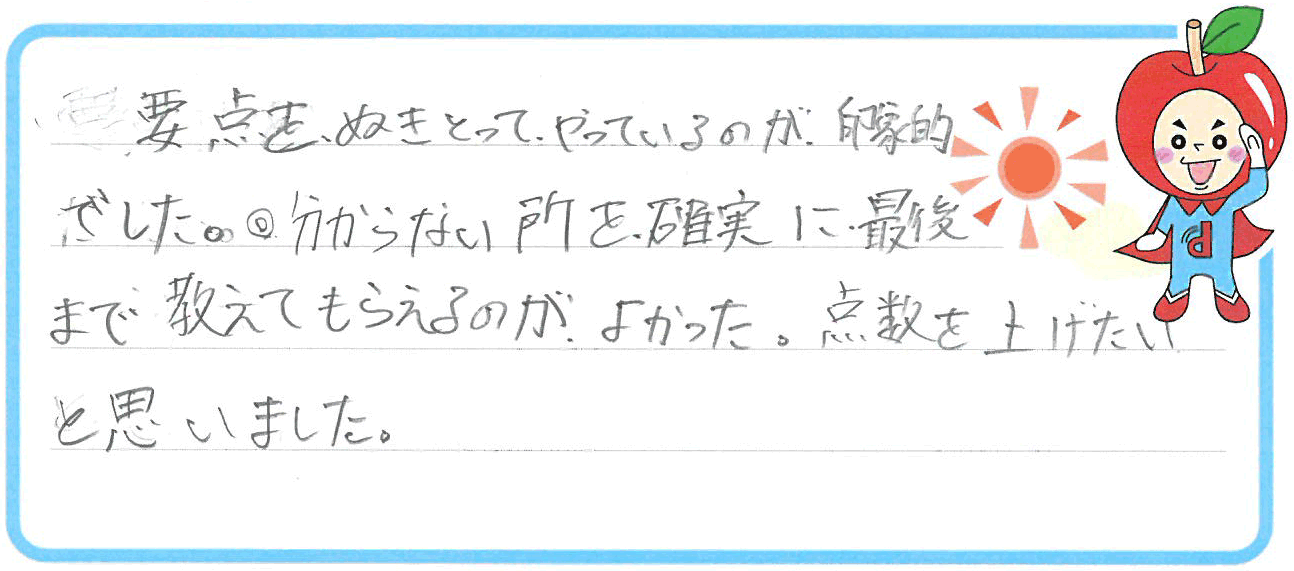 要点をぬきとってやっているのが印象的
でした。◎分からない所を確実に最後
まで教えてもらえるのがよかった。点数を上げたい
と思いました。
P